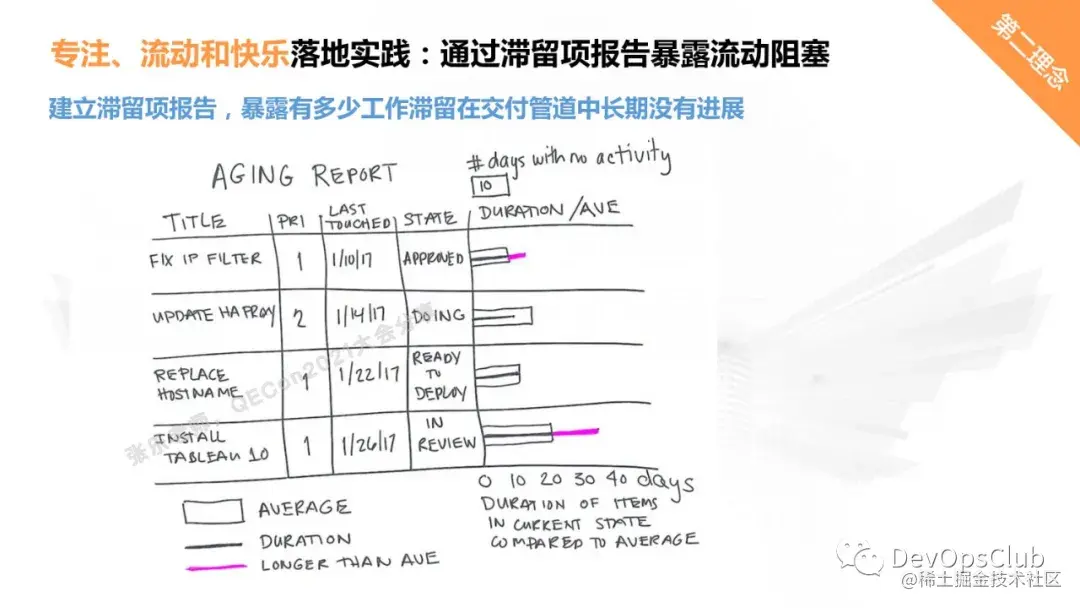 第二理念
专注、流动和快乐落地实践：通过滞留项报告暴露流动阻塞
建立滞留项报告，暴露有多少工作滞留在交付管道中长期没有进展
AGING REPORT
#days with no activity
10
TITLE PRI LAST TOUCHED STATE DURATION/AVE
FIX IP FILTER 1 1/10/17 APPROVED
UPDATE HAPROXY 2 1/14/17 DOING
REPLACE HOSTNAME 1 1/22/17 READY TO DEPLOY
INSTALL TABLEAU 10 1 1/26/17 IN REVIEW
0 10 20 30 40 days
DURATION OF ITEMS
IN CURRENT STATE
COMPARED TO AVERAGE
AVERAGE
DURATION
LONGER THAN AVE
QECon2021大会分享
DevOpsClub
@稀土掘金技术社区